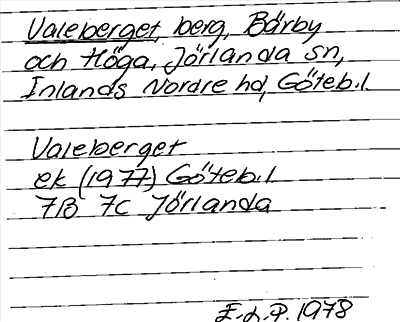 Valeberget, berg, Bärby
och Höga, Jörlanda sn,
Inlands Nordre hd, Göteb.l.
Valeberget
ek (1977) Göteb.l
7B 7c Jörlanda
E.L.P. 1978